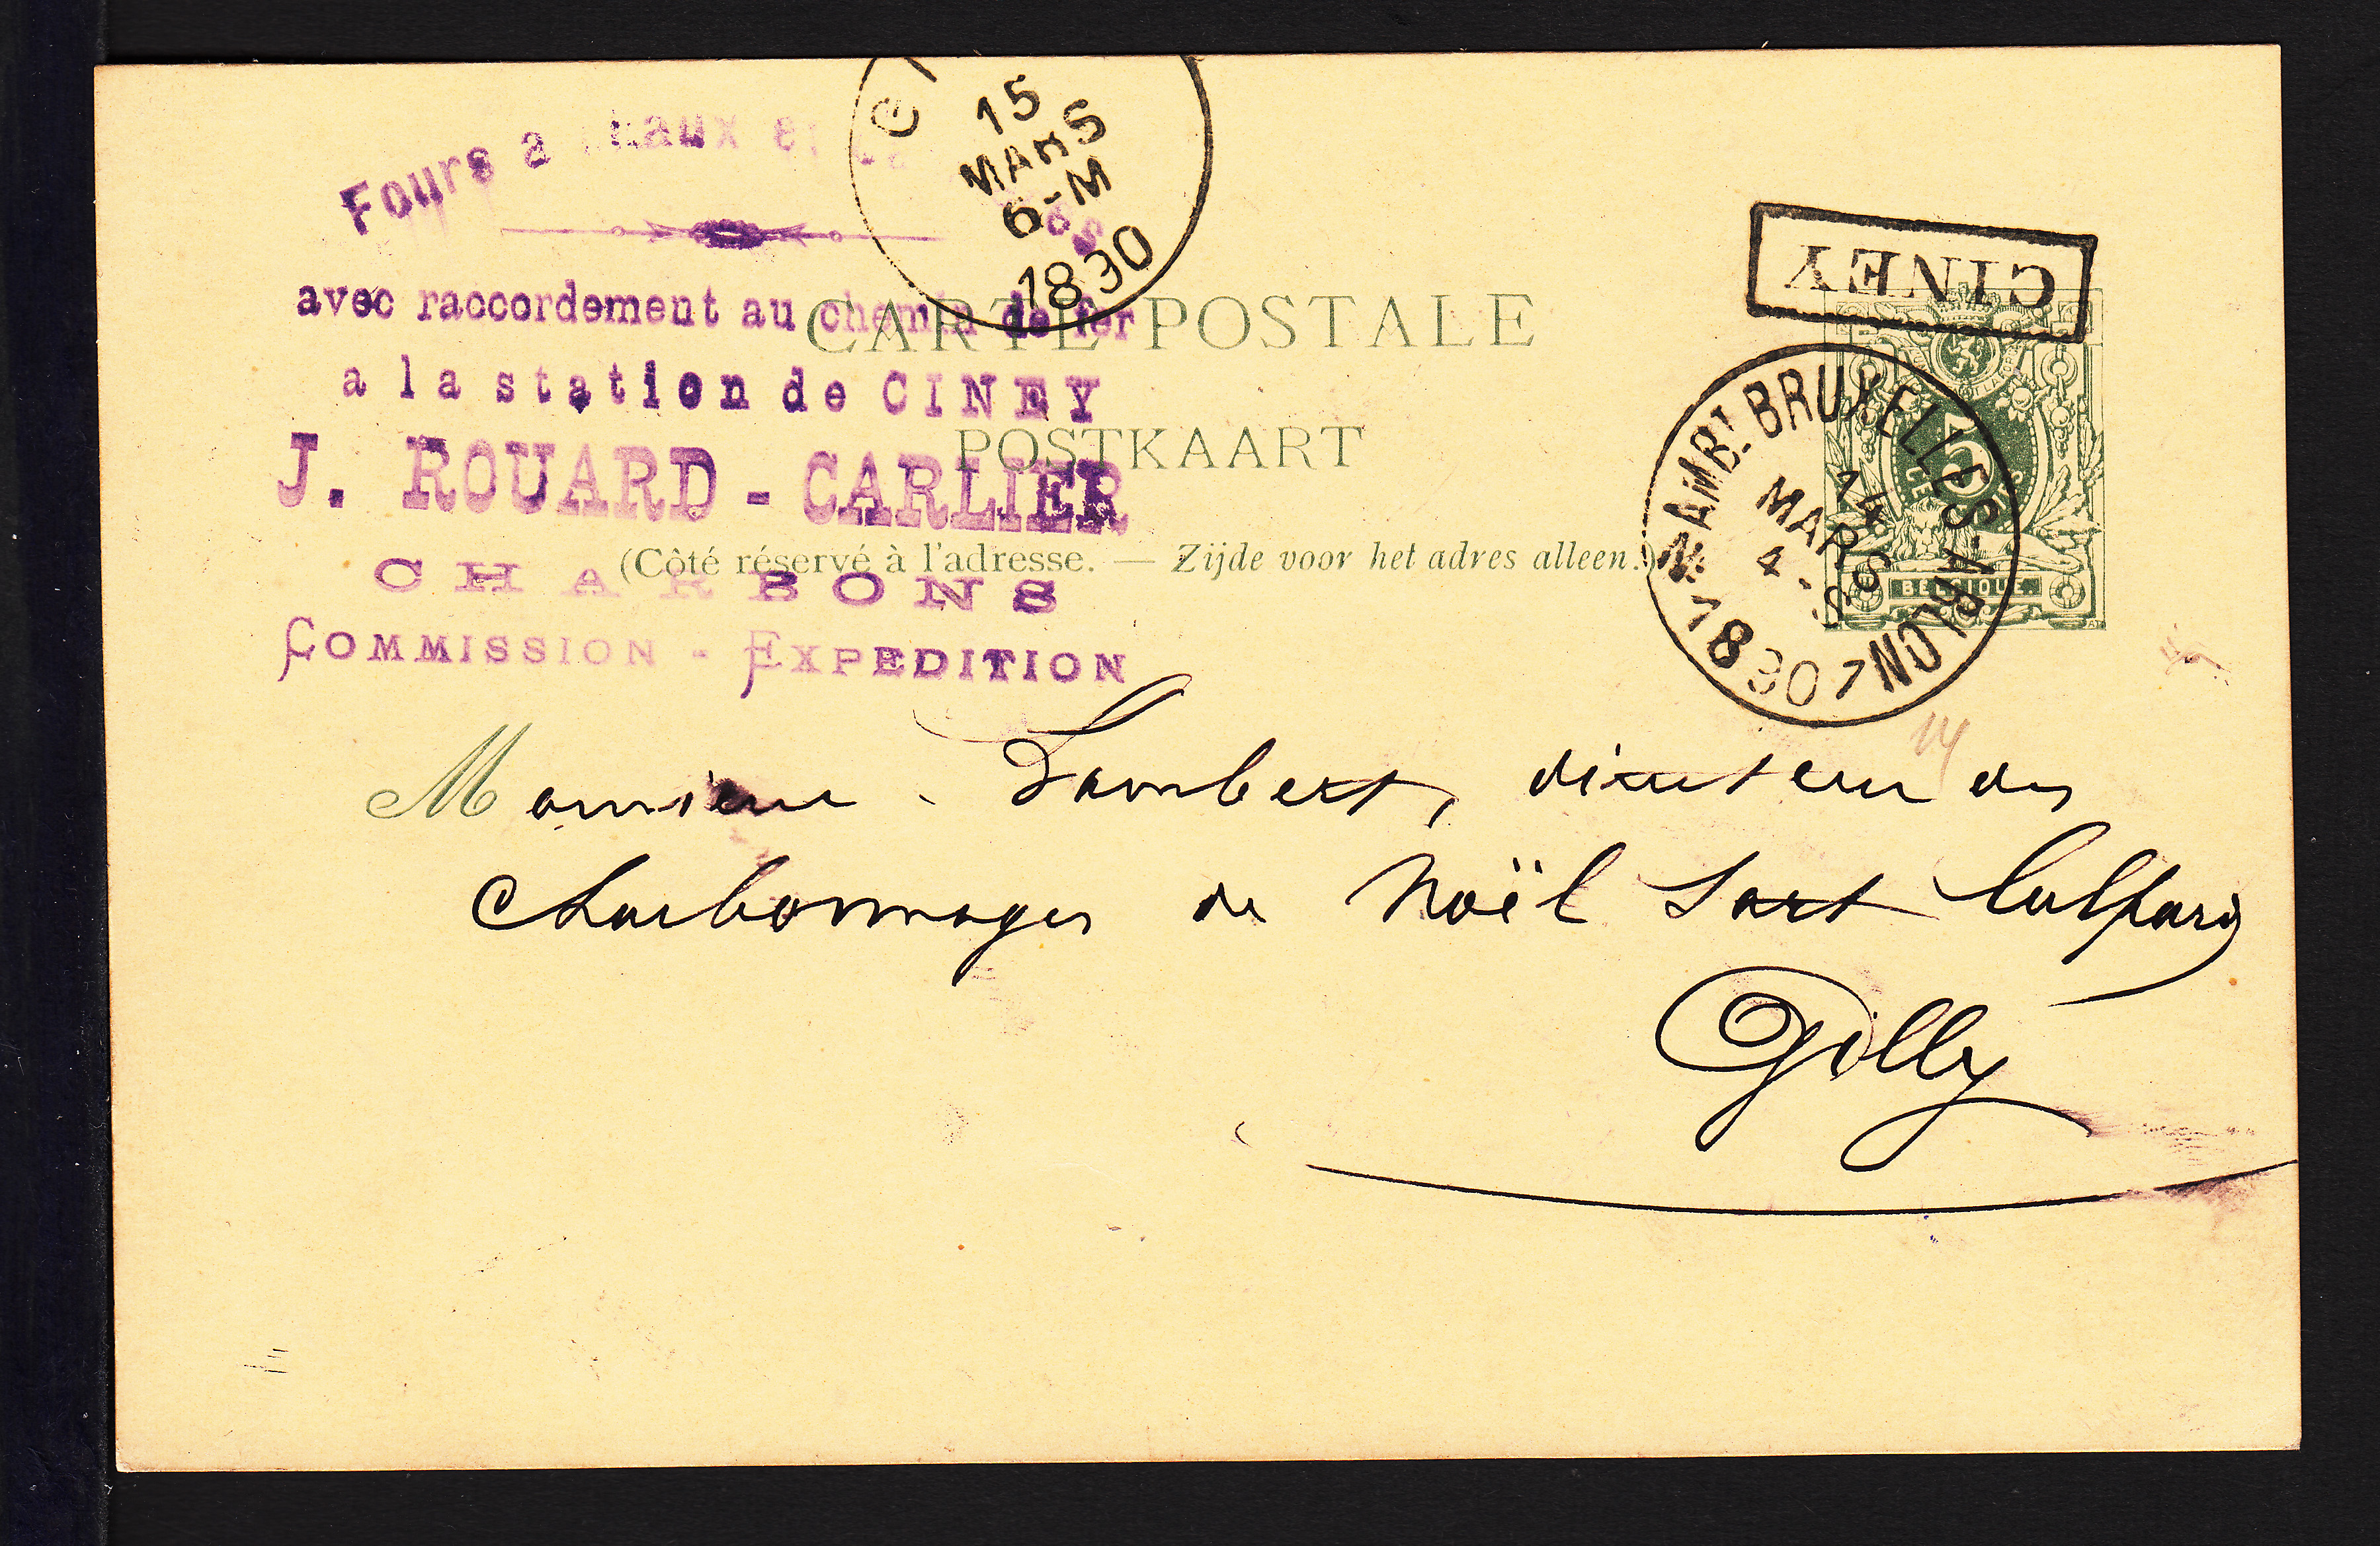 Fours a chaux et
avec raccordement au chemin de fer
a la station de CINEY
J. ROUARD - CARLIER
CHARBONS
COMMISSION - EXPEDITION
15
MARS
6-M
1890
CARTE POSTALE
POSTKAART
(Côté réservé à l'adresse. — Zijde voor het adres alleen.)
CINEY
AMBT BRUXELLES-ARLON 1
14
MARS
4-S
1890
5
BELGIQUE
14
Monsieur Lambert, directeur des
charbonnages de Noël Sart Culpart
Gilly